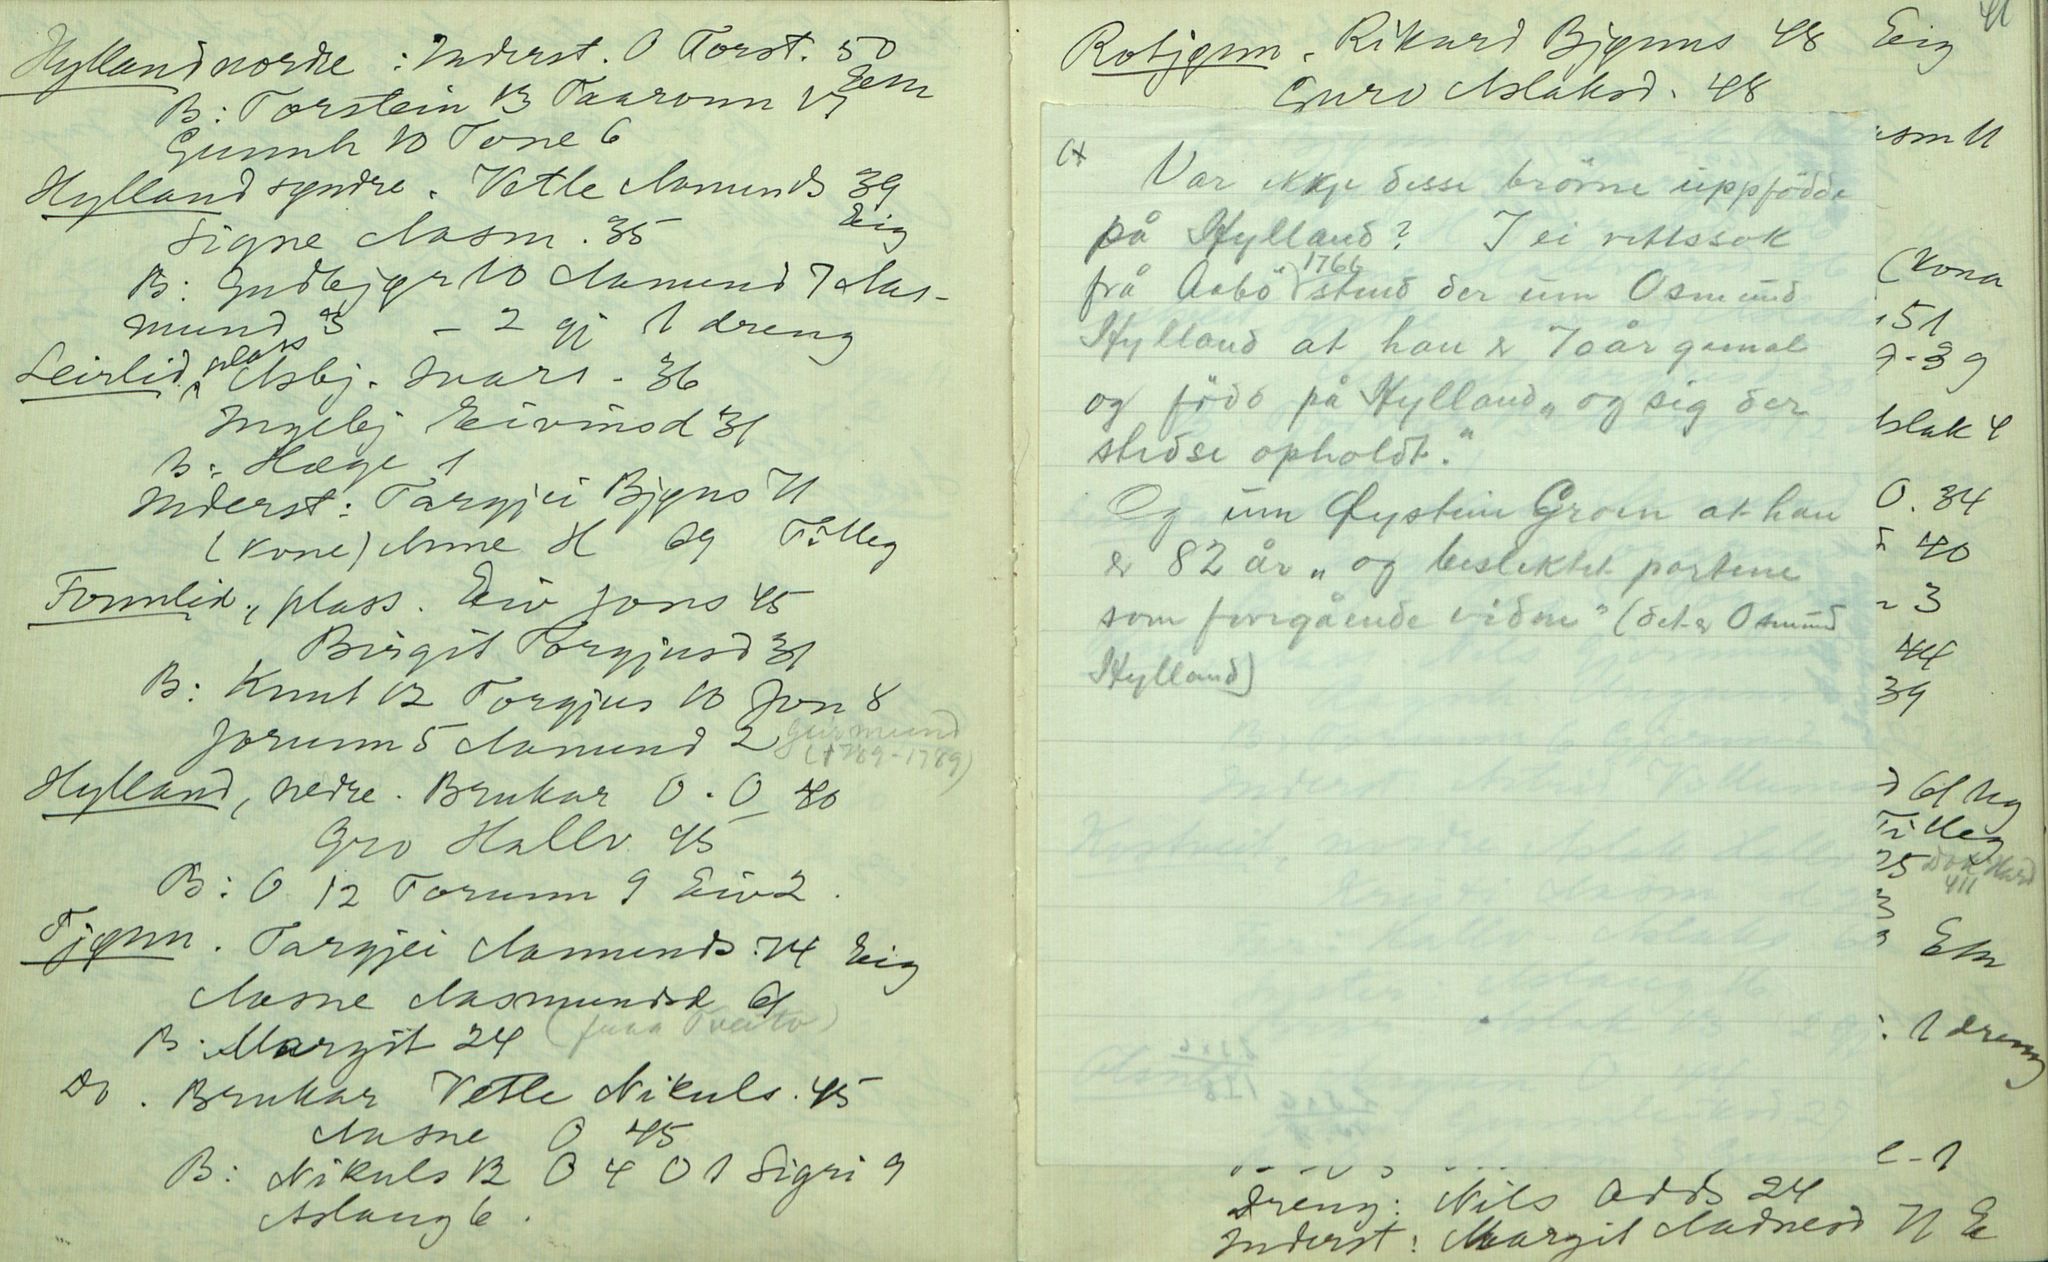 Hylland nordre : Inderst. O Torst. 50
Eem
B: Torstein 13 Taaronn 17
Gunnh 10 Tone 6
Hylland syndre. Vetle Aamunds 39
Eig
Signe Aasm. 35
B: Gudbjør 10 Aamund 7 Aas-
mund 3 - 2 gj 1 dreng
Leirlid, plass Asbj. Ivars - 36
Ingebj Eivinsd 31
B: Hæge 1
Inderst: Targjei Bjøns 71
(Kone) Anne H 69 Tilleg
Fonnlid, plass. Eiv Jons 45
Birgit Torgjusd 31
B: Knut 12 Torgjus 10 Jon 8
Jorunn 5 Aamund 2 Geirmund
(1789-1789)
Hylland, nedre. Brukar O. O 40
Gro Hallv 45
B: O 12 Torunn 9 Eiv 2.
Tjønn. Targjei Aamunds. 74 Eig
Aasne Aasmundsd 61
B: Margit 24
Do. Brukar Vetle Nikuls. 45
Aasne O 45
B: Nikuls 12 O 4 O 1 Sigri 9
Aslaug 6.
41
Rotjønn. Rikard Bjønns 48 Eig
Guro Aslaksd. 48
Var ikkje desse brörne uppfödde
på Hylland? I ei rettssak
frå Aabö 1766 stend der um Osmund
Hylland at han er 70 år gamal
og född på Hylland „og sig der
stedse opholdt."
Og um Øystein Groen at han
er 82 år „og beslektet partene
som foregående vidne" (det er Osmund
Hylland)
(Kona
51
- 39
slak 4
O. 34
40
3
44
39
61 ug
Tilleg
25
Em
: 1 dreng
e - 1
Dreng: Nils Odds 24
Inderst: Margit Aadnesd 71 E